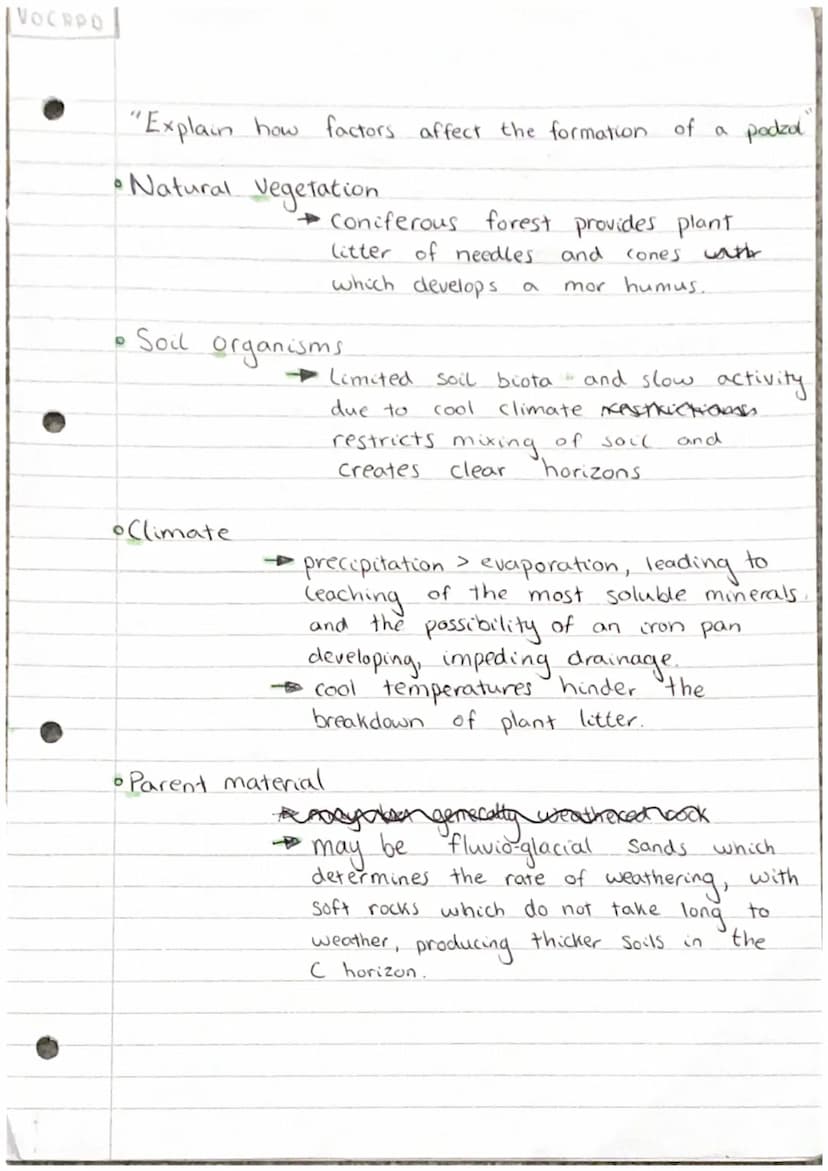 VOCRPD
"Explain how factors affect the formation of a podzol"
Natural vegetation
→ coniferous forest provides plant
litter of needles and cones
which develops a mor humus.
Soil organisms
→ Limited soil biota and slow activity
due to cool climate restrictions
restricts mixing of soil and
creates clear horizons
Climate
→ precipitation > evaporation, leading to
leaching of the most soluble minerals
and the possibility of an iron pan
developing, impeding drainage.
→ cool temperatures hinder the
breakdown of plant litter.
Parent material
generally weathered rock
→ may be fluvio-glacial sands which
determines the rate of weathering, with
soft rocks which do not take long to
weather, producing thicker soils in the
C horizon.